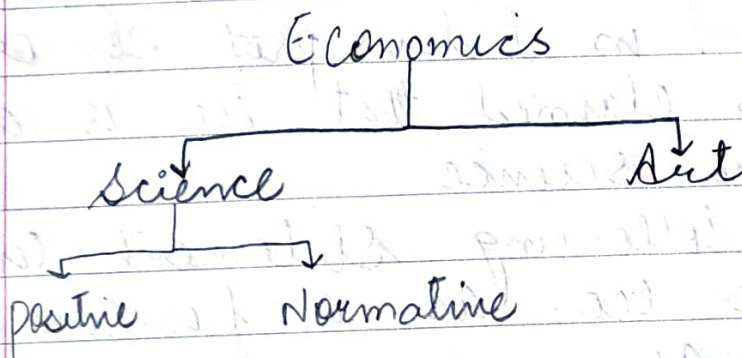 Economics
Science Art
Positive Normative